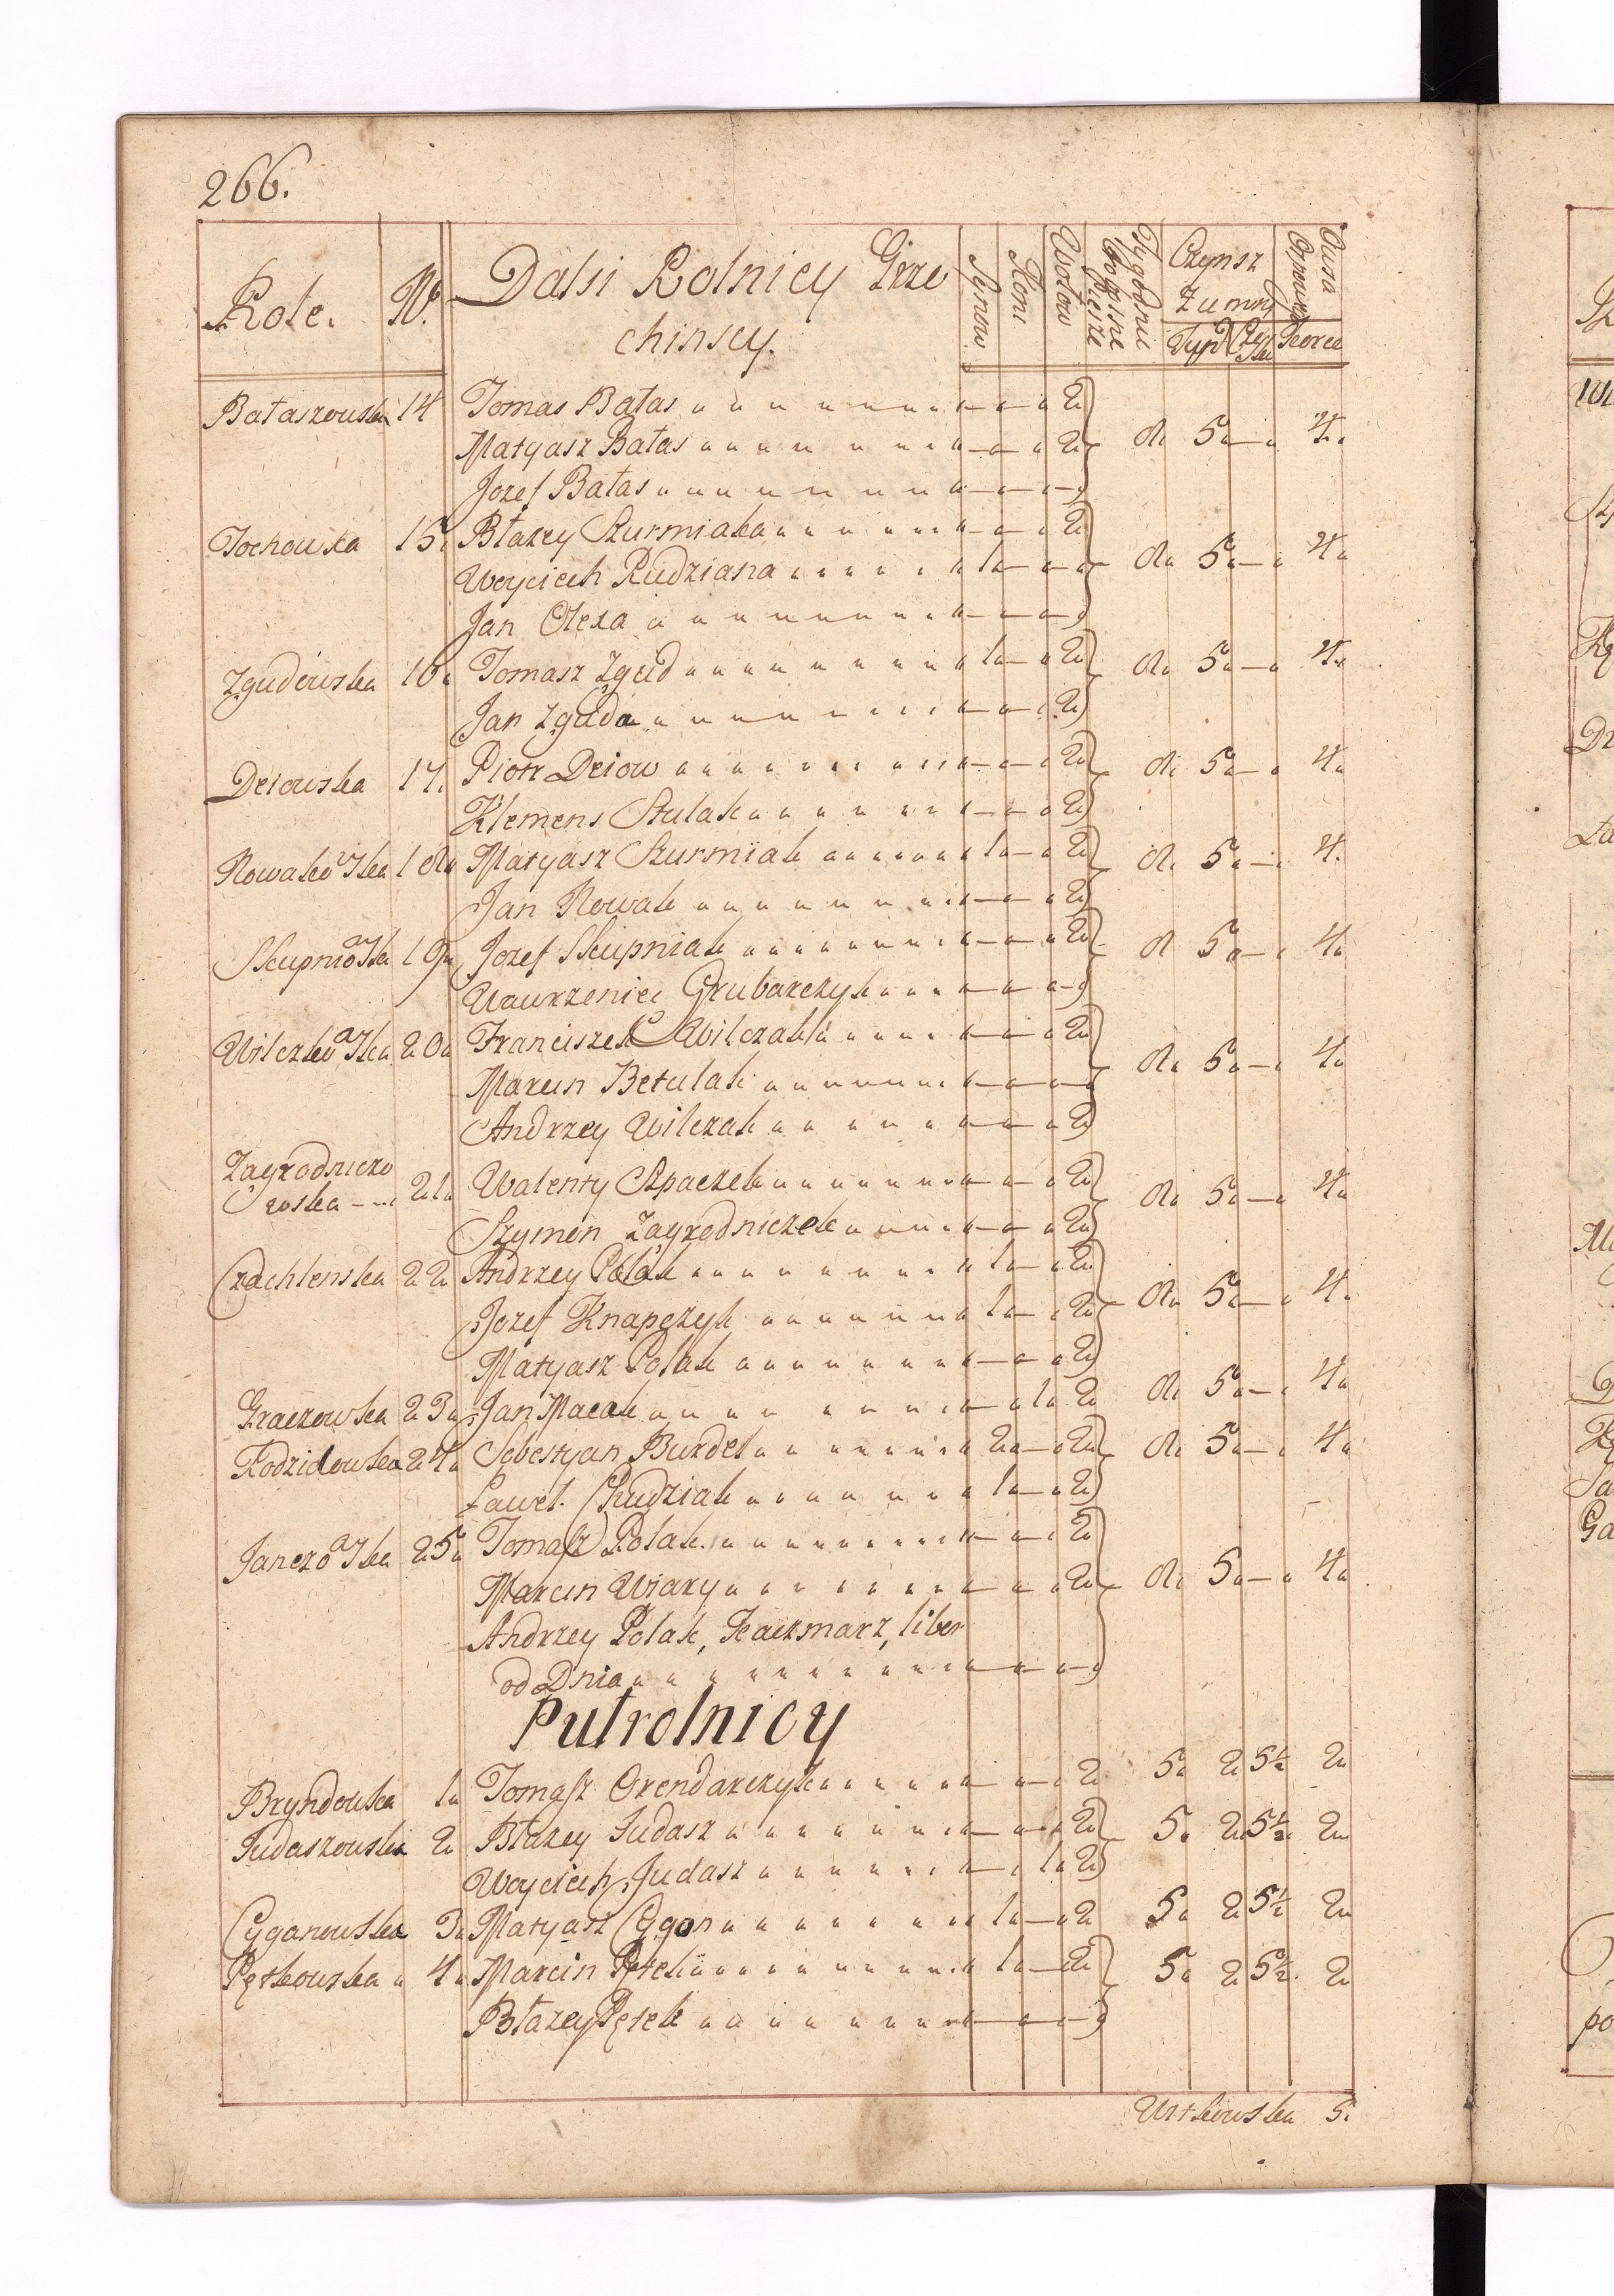 266.
Role. N. Dalsi Rolnicy Grze Synow Koni Wołow Tygodnie Czynsz Owsa
chinscy. piesze Zimny
Tynf Korce
Bałaszowska 14 Tomas Bałas 2
Matyasz Bałas 2 8. 5 4.
Jozef Bałas
Tochowka 15. Błażey Szurmiak 2
Woyciech Rudziana 1 8 5 4
Jan Olexa
Zgudowska 16 Tomasz Zgud 1 2 8 5 4
Jan Zguda 2
Deiowska 17. Piotr Deiow 2 8 5 4
Klemens Stulak 2
Nowakowska 18 Matyasz Szurmiak 1 2 8 5 4.
Jan Nowak 2
Skupniowska 19 Jozef Skupniak 2 8 5 4
Wawrzeniec Grubarczyk
Wilczkowska 20 Franciszek Wilczak 2
Marcin Betulak 8 5 4
Andrzey Wilczak 2
Zagrodniczo
wska 21 Walenty Szpaczek 2 8 5 4
Szymon Zagrodniczek 2
Czachlenska 22 Andrzey Polak 1 2
Jozef Knapczyk 1 2 8 5 4.
Matyasz Polak 2
Graczowska 23 Jan Macak 1 2 8 5 4
Rodzidowska 24 Sebestyan Burdel 2 2 8 5 4
Pawel. Chudziak 1 2
Janczowska 25 Tomasz Polak 2
Marcin Wiary 2 8 5 4
Andrzey Polak, Kaczmarz, liber
od Dnia
Pułrolnicy
Bryndowska 1 Tomasz Orendarczyk 2 5 2 5½ 2
Judaszowska 2 Błażey Judasz 2 5 2 5½ 2
Woyciech Judasz 1 2
Cyganowska 3 Matyasz Cygan 1 2 5 2 5½ 2
Pętkowska 4 Marcin Pętek 1 2 5 2 5½ 2
Błażey Pętek
5.